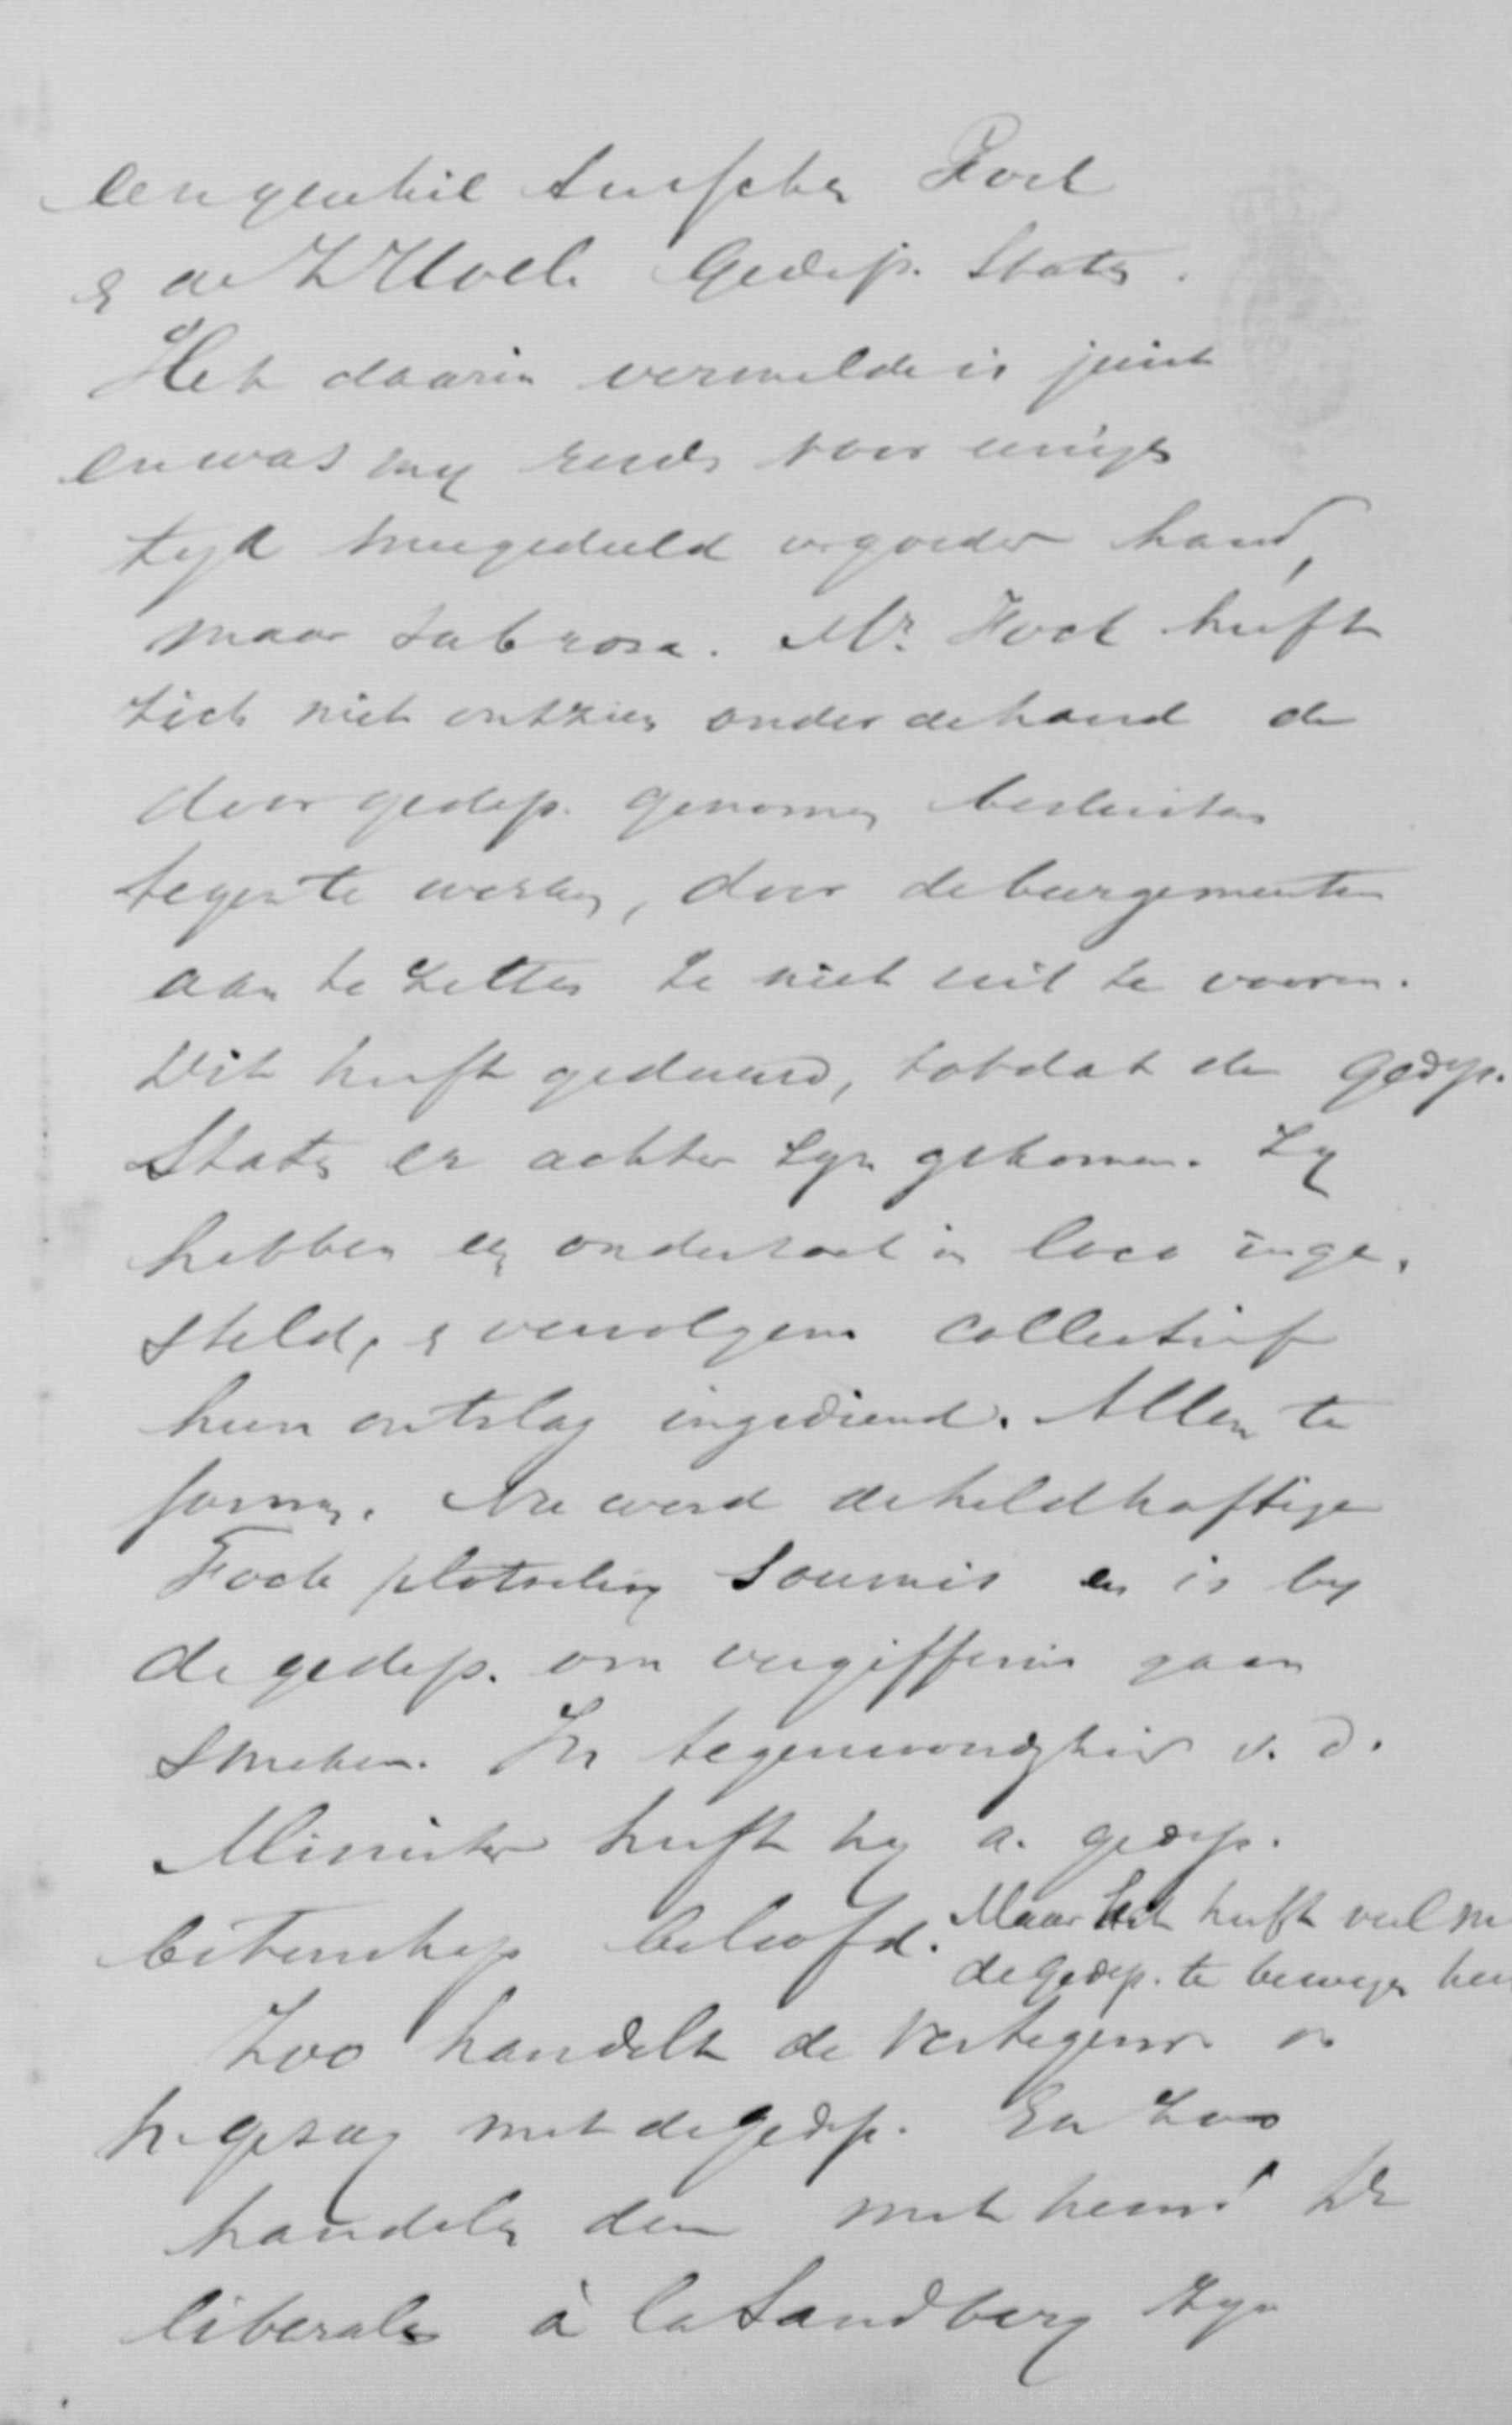 een geschil tusschen Fock
& de ZHoll. Gedep. Staten.
Het daarin vermelde is juist
en was my reeds voor eenigen
tyd meegedeeld v goeder hand,
maar sub rosa. Mr. Fock heeft
zich niet ontzien onder de hand de
door gedep. genomen besluiten
tegen te werken, door de burgemeesters
aan te zetten ze niet uit te voeren.
Dit heeft geduurd, totdat de Gedep.
Staten er achter zyn gekomen. Zy
hebben een onderzoek in loco inge-
steld, & vervolgens collectief
hun ontslag ingediend. Allen te
samen. Nu werd de heldhaftige
Fock plotseling soumis en is by
de gedep. om vergiffenis gaan
smeken. In tegenwoordigheid v. d.
Minister heeft hy d. gedep.
beterschap beloofd. Maar het heeft veel
de Gedep. te bewegen
Zoo handelt de vertegenw. v.
h. gezag met de gedep. En zoo
handelen deze met hem! De
liberalen à la Sandberg zyn